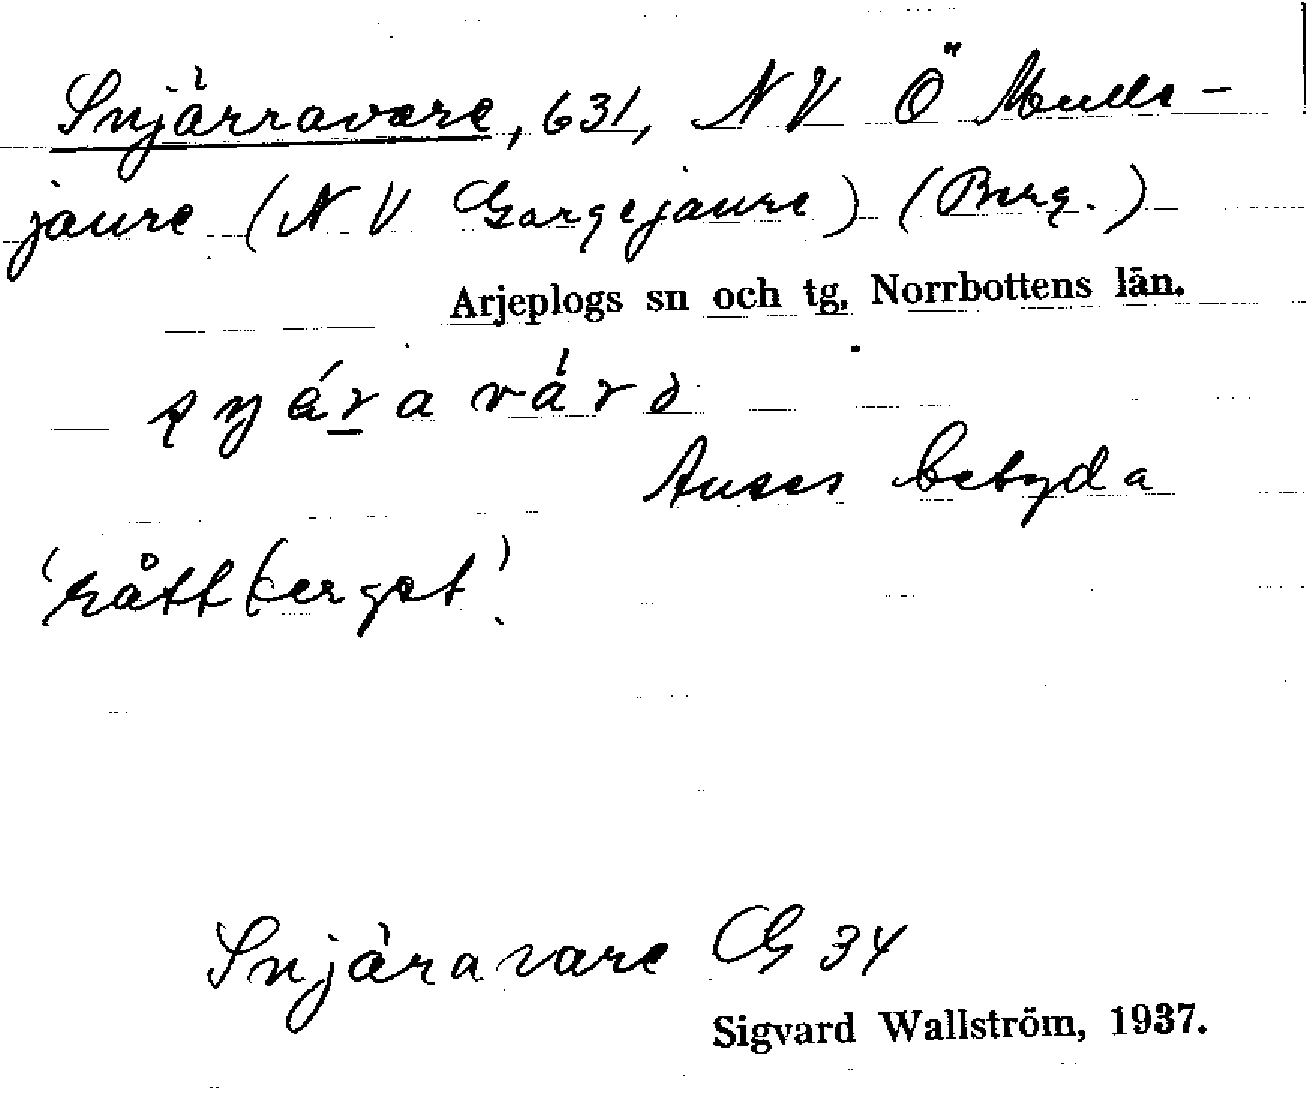 Snjàrravare, 631, NV Ö Mulla-
jaure (NV Gargejaure) (Berg.)
Arjeplogs sn och tg, Norrbottens län.
Anses betyda
'råttberget'.
Snjàravare G 34
Sigvard Wallström, 1937.